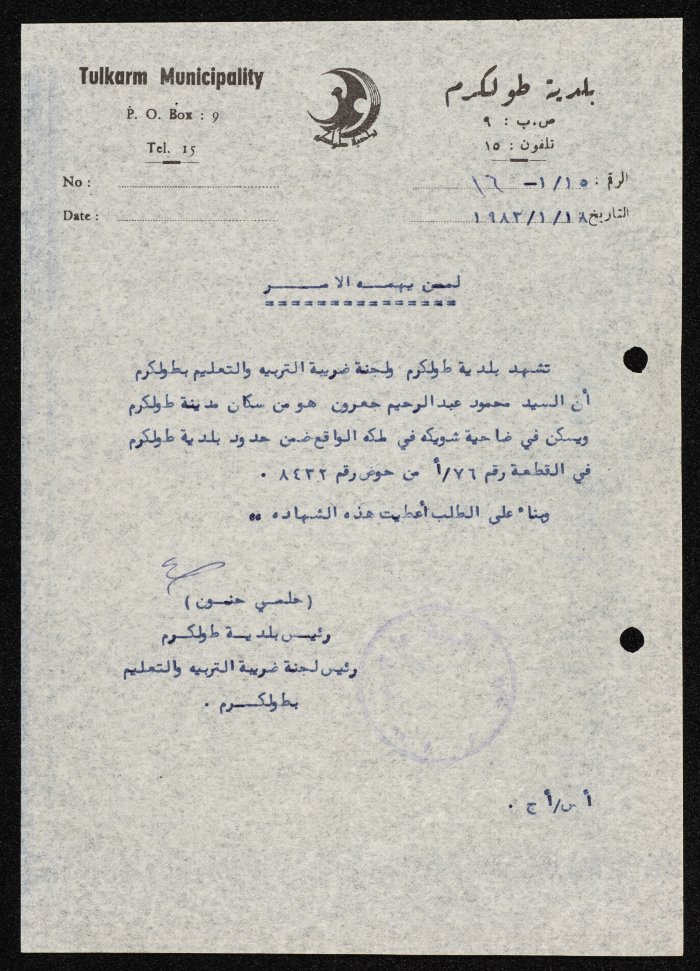 Tulkarm Municipality
P. O. Box : 9
Tel. 15
No :
Date :
بلدية طولكرم
ص.ب : ٩
تلفون : ١٥
الرقم : ١/١٥ – ١٦
التاريخ ١٩٨٣/١/١٨
لمن يهمه الامر
===============
تشهد بلدية طولكرم ولجنة ضريبة التربيه والتعليم بطولكرم
أن السيد محمود عبدالرحيم جعرون هو من سكان مدينة طولكرم
ويسكن في ضاحية شويكه في ملكه الواقع ضمن حدود بلدية طولكرم
في القطعة رقم ٧٦/أ من حوض رقم ٨٤٣٢ .
وبناء على الطلب أعطيت هذه الشهاده ..
(حلمي حنون)
رئيس بلدية طولكرم
رئيس لجنة ضريبة التربيه والتعليم
بطولكرم .
أ س/أ ج .